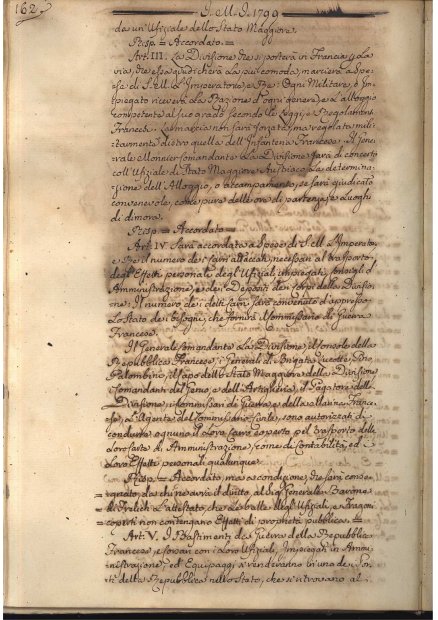 162.
I. M. I. 1799
da un' Ufiziale dello Stato Maggiore.
Risp. = Accordato. =
Art. III. La Divisione si porterà in Francia per la
via, che essa giudicherà la più comoda, marcierà a spe
se di S. M. l'Imperatore, e Re: Ogni Militare, o Im
piegato riceverà la Razione d'ogni genere, e l'alloggio
competente al suo grado secondo le Leggi, e Regolamenti
Francesi. La marcia non sarà forzata, ma regolata mili
tarmente dietro quella dell'Infanteria Francese. Il Gene
rale Monnier Comandante la Divisione farà di concerto
coll'Ufiziale di Stato Maggiore Austriaco la determina
zione dell'Alloggio, o accampamento, se sarà giudicato
convenevole, come pure delle ore di partenza, e luoghi
di dimora.
Risp. = Accordato =
Art. IV. Sarà accordato a spese di S. M. l'Imperator,
e Re il numero de' carri attaccati, necessarj al trasporto
degl'Effetti personali degl'Ufiziali, impiegati, Consigli d'
Amministrazione, e dei Depositi dei Corpi della Divisio
ne: Il numero de' detti carri sarà convenuto d'appresso
lo Stato de' bisogni, che fornirà il Commissario di Guerra
Francese.
Il Generale Comandante la Divisione, il Console della
Repubblica Francese, i Generali di Brigata Lucotte, Pino,
Palombino, il Capo dello Stato Maggiore della Divisione
i Comandanti del Genio, e dell'Artiglieria, il Pagatore della
Divisione, i Commissarj di Guerra, e della Marina France
se, l'Agente del sono autorizzati di
condurre ognuno il loro Carro coperto pel trasporto delle
loro Carte di Amministrazione, come di Contabilità, ed i
loro Effetti personali qualunque.
Risp. = Accordato, ma a condizione, che sarà conse
gnato, da chi ne avrà il diritto, al Sig. Generale Barone
di Frölich l'attestato, che le balle degl'Ufiziali, e Carri
coperti non contengano Effetti di proprietà pubblica. =
Art. V. I Bastimenti da Guerra della Repubblica
Francese, e Corsari con i loro Ufiziali, Impiegati in Ammi
nistrazione, ed Equipaggi si renderanno in uno de' Por
ti della Repubblica nello Stato, che si ritrovano al